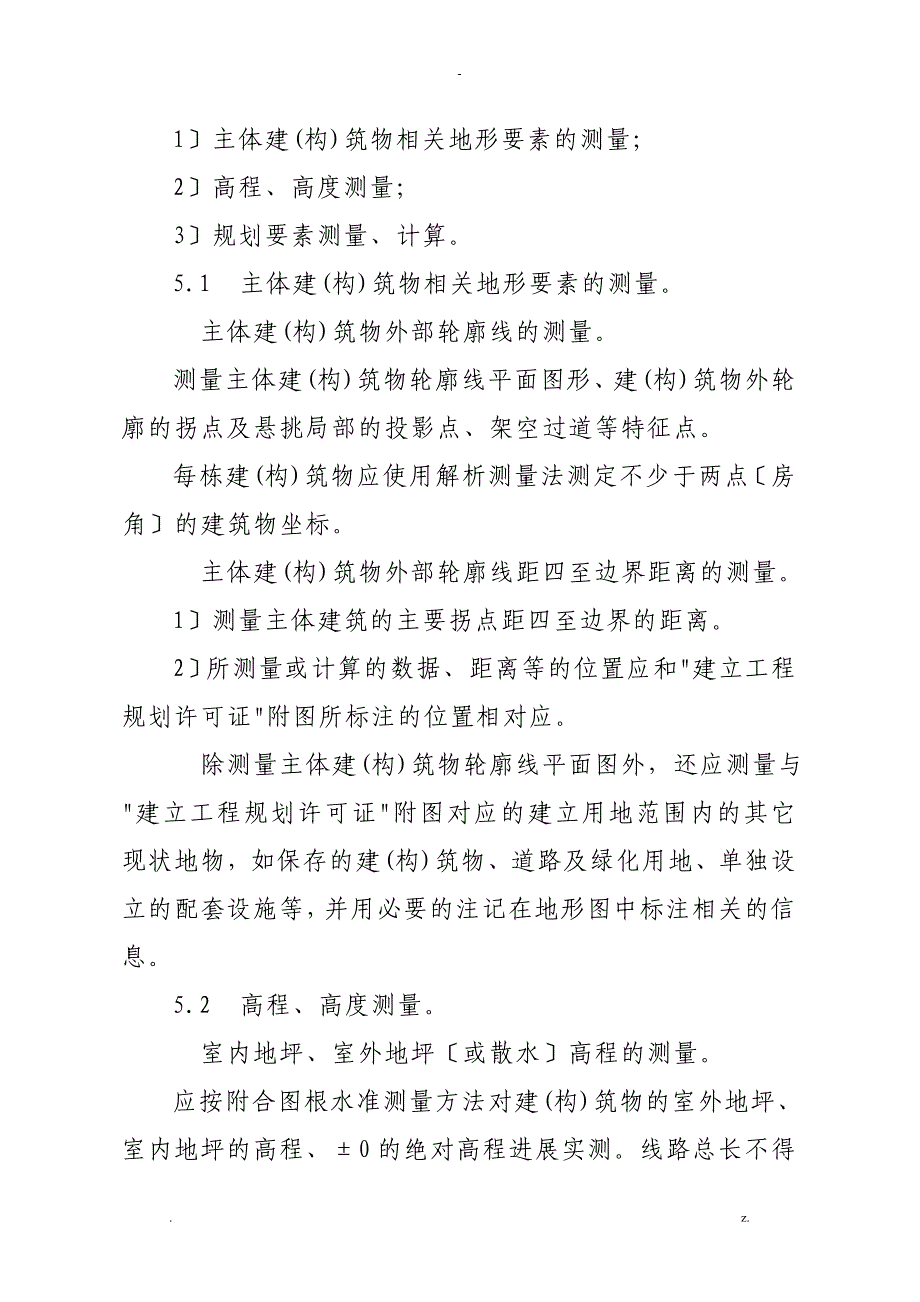 -
1〕主体建(构)筑物相关地形要素的测量;
2〕高程、高度测量;
3〕规划要素测量、计算。
5.1 主体建(构)筑物相关地形要素的测量。
主体建(构)筑物外部轮廓线的测量。
测量主体建(构)筑物轮廓线平面图形、建(构)筑物外轮
廓的拐点及悬挑局部的投影点、架空过道等特征点。
每栋建(构)筑物应使用解析测量法测定不少于两点〔房
角〕的建筑物坐标。
主体建(构)筑物外部轮廓线距四至边界距离的测量。
1〕测量主体建筑的主要拐点距四至边界的距离。
2〕所测量或计算的数据、距离等的位置应和"建立工程
规划许可证"附图所标注的位置相对应。
除测量主体建(构)筑物轮廓线平面图外,还应测量与
"建立工程规划许可证"附图对应的建立用地范围内的其它
现状地物,如保存的建(构)筑物、道路及绿化用地、单独设
立的配套设施等,并用必要的注记在地形图中标注相关的信
息。
5.2 高程、高度测量。
室内地坪、室外地坪〔或散水〕高程的测量。
应按附合图根水准测量方法对建(构)筑物的室外地坪、
室内地坪的高程、±0的绝对高程进展实测。线路总长不得
. z.